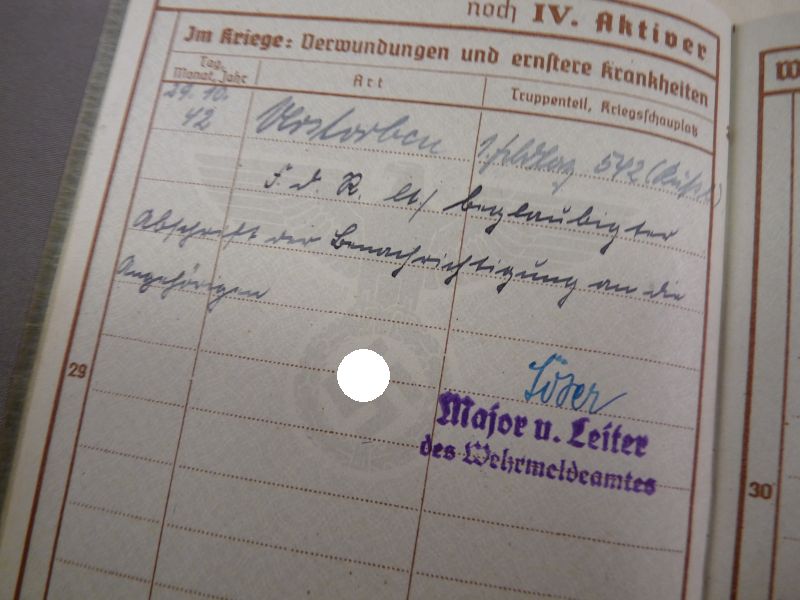 noch IV. Aktiver
Im Kriege: Verwundungen und ernstere Krankheiten
Tag, Monat, Jahr
Art
Truppenteil, Kriegsschauplatz
29. 10. 42
Verstorben
542
F. d. R. lt/ beglaubigter
Abschrift der Benachrichtigung an die
Angehörigen
Major u. Leiter
des Wehrmeldeamtes
29
30